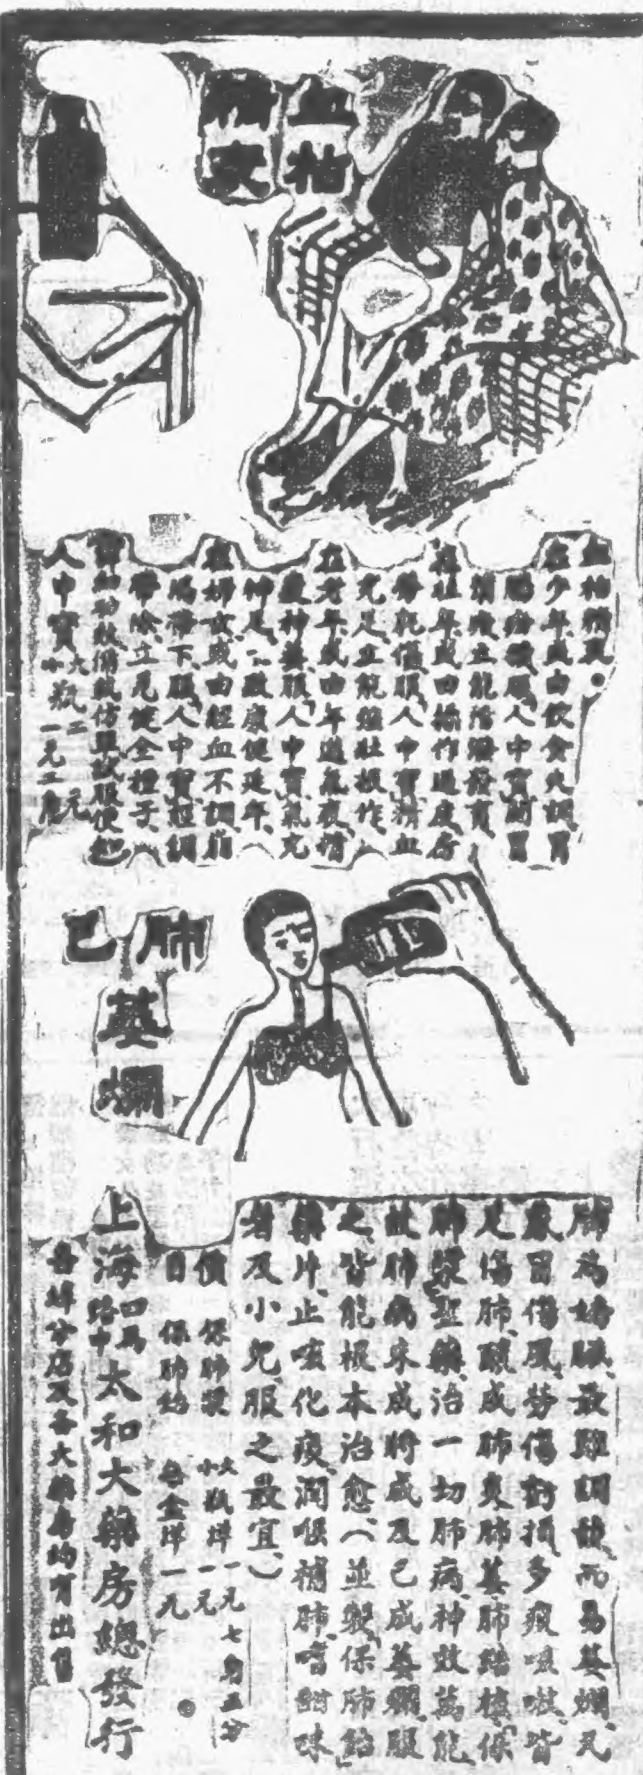 血枯
精衰
血枯精衰。
在少年或由飲食失調胃
服人中寶開胃
立能
在壯年或由操作過度房
勞服人中寶精血
充足立能強壯操作
在老年或由年邁氣衰精
神萎服人中寶氣充
神足一致康健延年
在婦女或由經血不調崩
漏帶下服人中寶經調
帶除立見健全種子
人中寶 大瓶二元
小瓶一元二角
肺已
萎爛
肺為嬌臟最難調護而易萎爛凡
感冒傷風勞傷虧損多痰咳嗽皆
足傷肺釀成肺炎肺萎肺癆保
肺漿聖藥治一切肺病神效萬能
故肺病未成將成及已成萎爛服
之皆能根本治愈(並製保肺飴
藥片止咳化痰潤喉補肺嗜甜味
者及小兒服之最宜)
價 保肺漿 大瓶洋一元七角五分
小瓶洋一元
目 保肺飴 每盒洋一元
上海四馬路中太和大藥房總發行
各埠分店及各大藥房均有出售